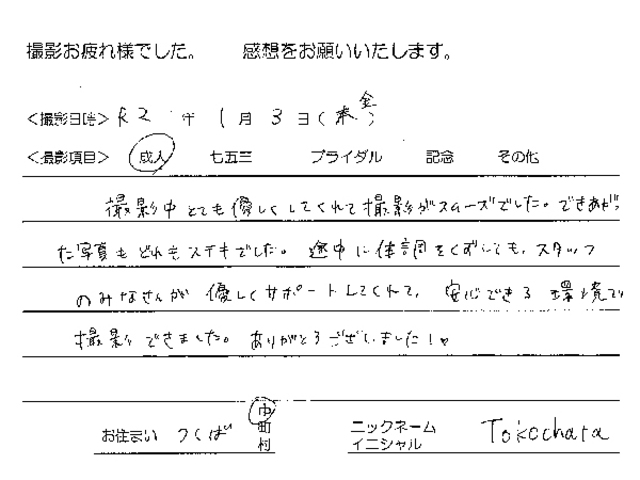 撮影お疲れ様でした。 感想をお願いいたします。
<撮影日時> R2 年 1 月 3 日( 金 )
<撮影項目> 成人 七五三 ブライダル 記念 その他
撮影中とても優しくしてくれて撮影がスムーズでした。できあがっ
た写真もどれもステキでした。途中に体調をくずしても、スタッフ
のみなさんが優しくサポートしてくれて、安心できる環境で
撮影できました。ありがとうございました!♥
お住まい つくば 市町村 ニックネーム イニシャル Tokochara